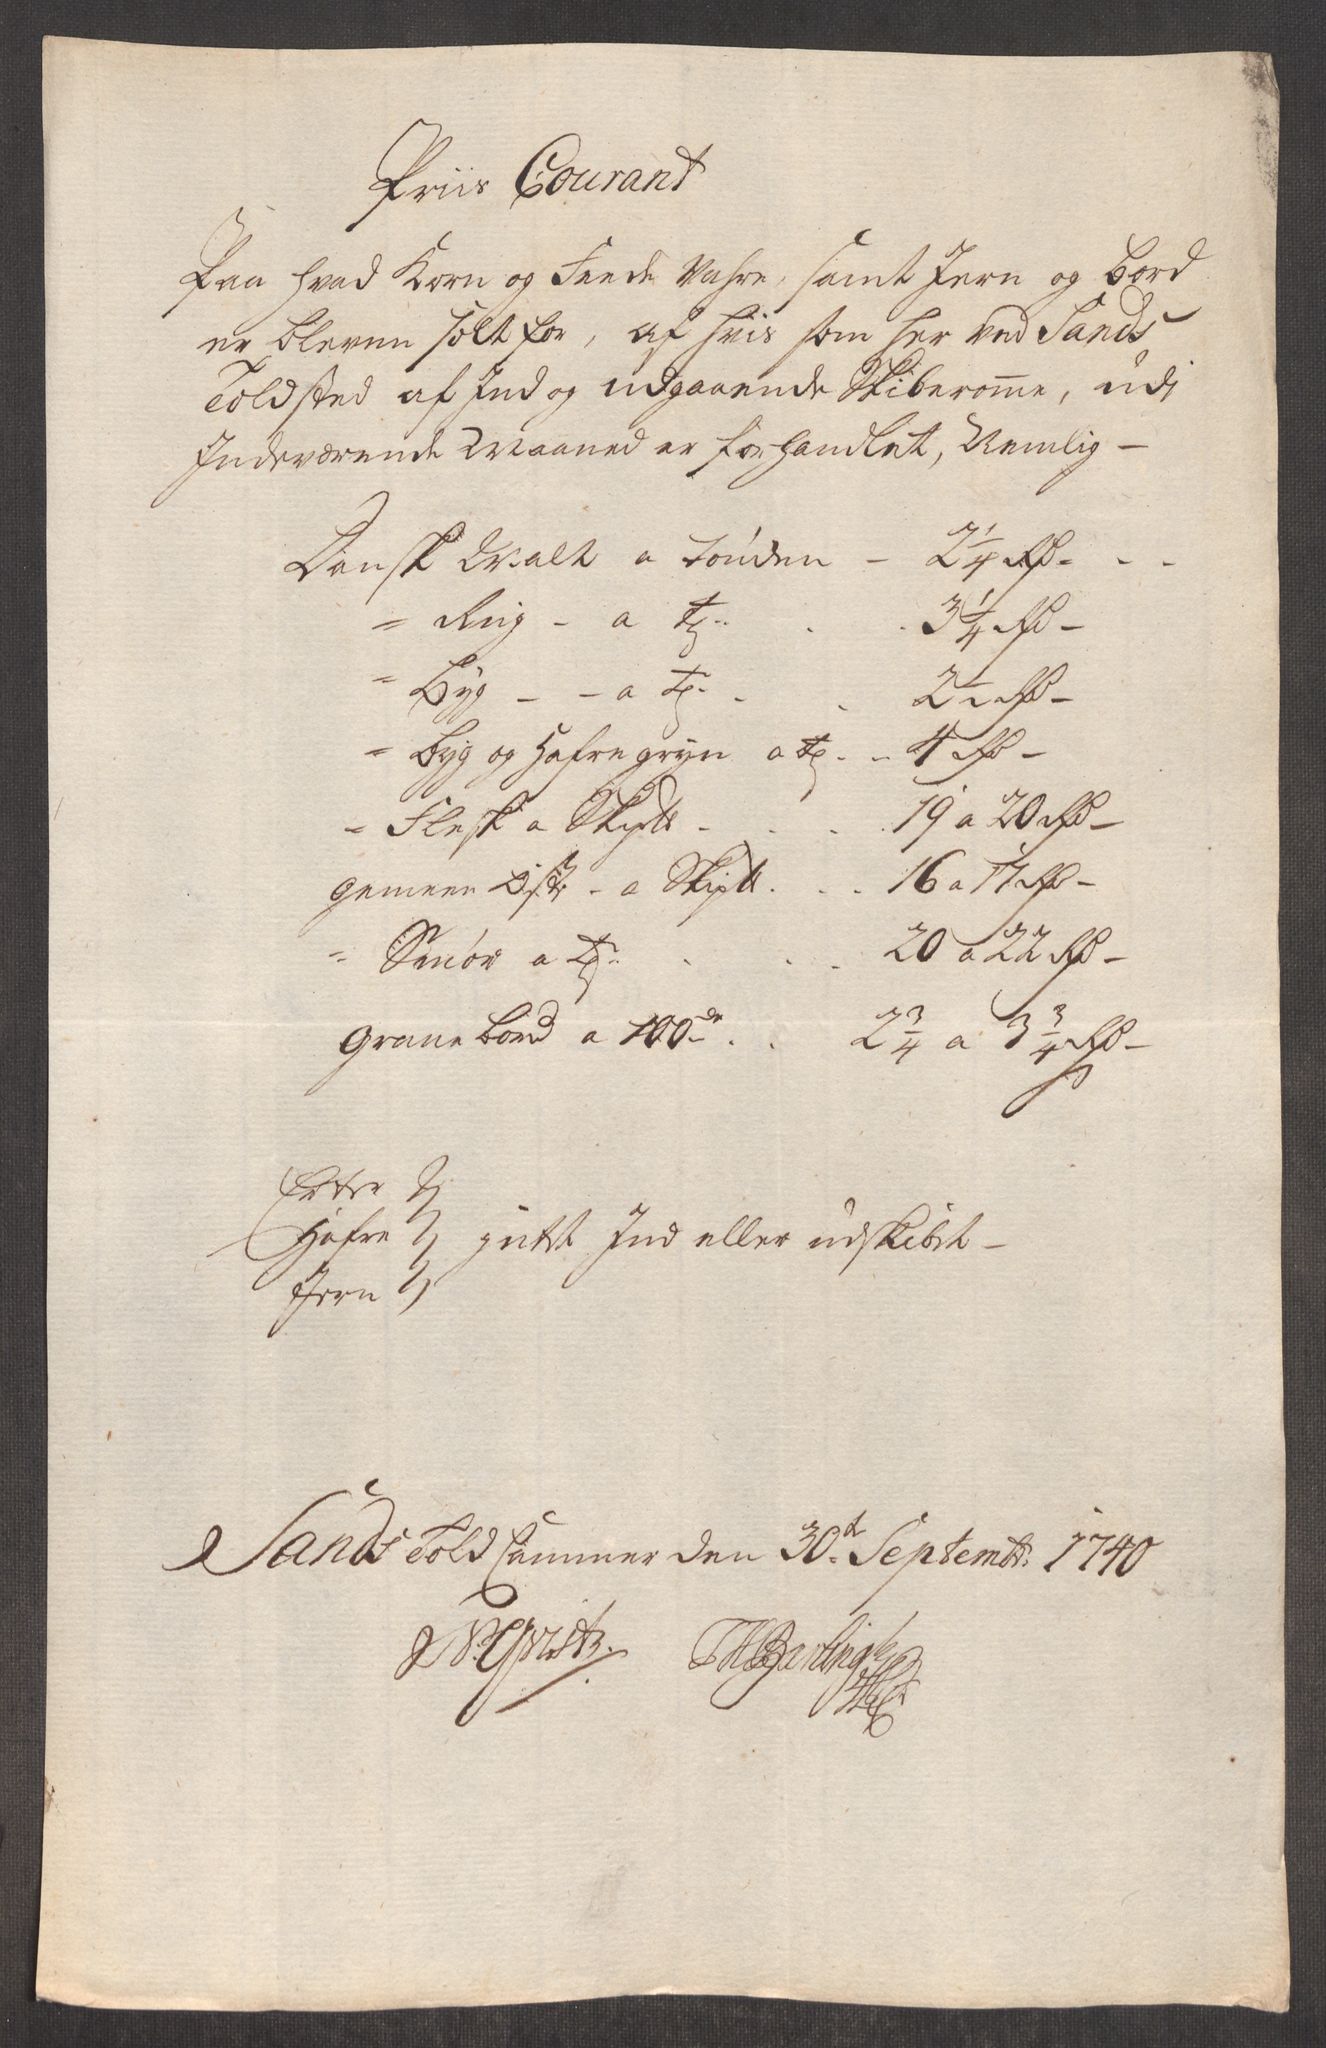 Priis Courant
Paa hvad Korn og Feede Vahre, samt Jern og Bord
er bleven solt for, af hvis som her ved Sands
Toldsted af Ind og udgaaende Skiberomme, udj
Indeværende Maaned er forhandlet, Nemlig -
Dansk Malt a Tønden - 2 1/4 Rd - - -
" Rug - a Td . . 3 1/4 Rd -
" Byg - - a Td . . 2 Rd -
" Byg og Hafre gryn a Td . - 4 Rd -
" Flesk a Skpd - . . 19 a 20 Rd -
gemeen a Skpd . . . 16 a 17 Rd -
" Smør a Td . . . 20 a 22 Rd -
grane bord a 100de . . 2 3/4 a 3 3/4 Rd -
Erter
Hafre } intet Ind eller udskibet -
Jern
Sands Told Cammer den 30t Septembr: 1740